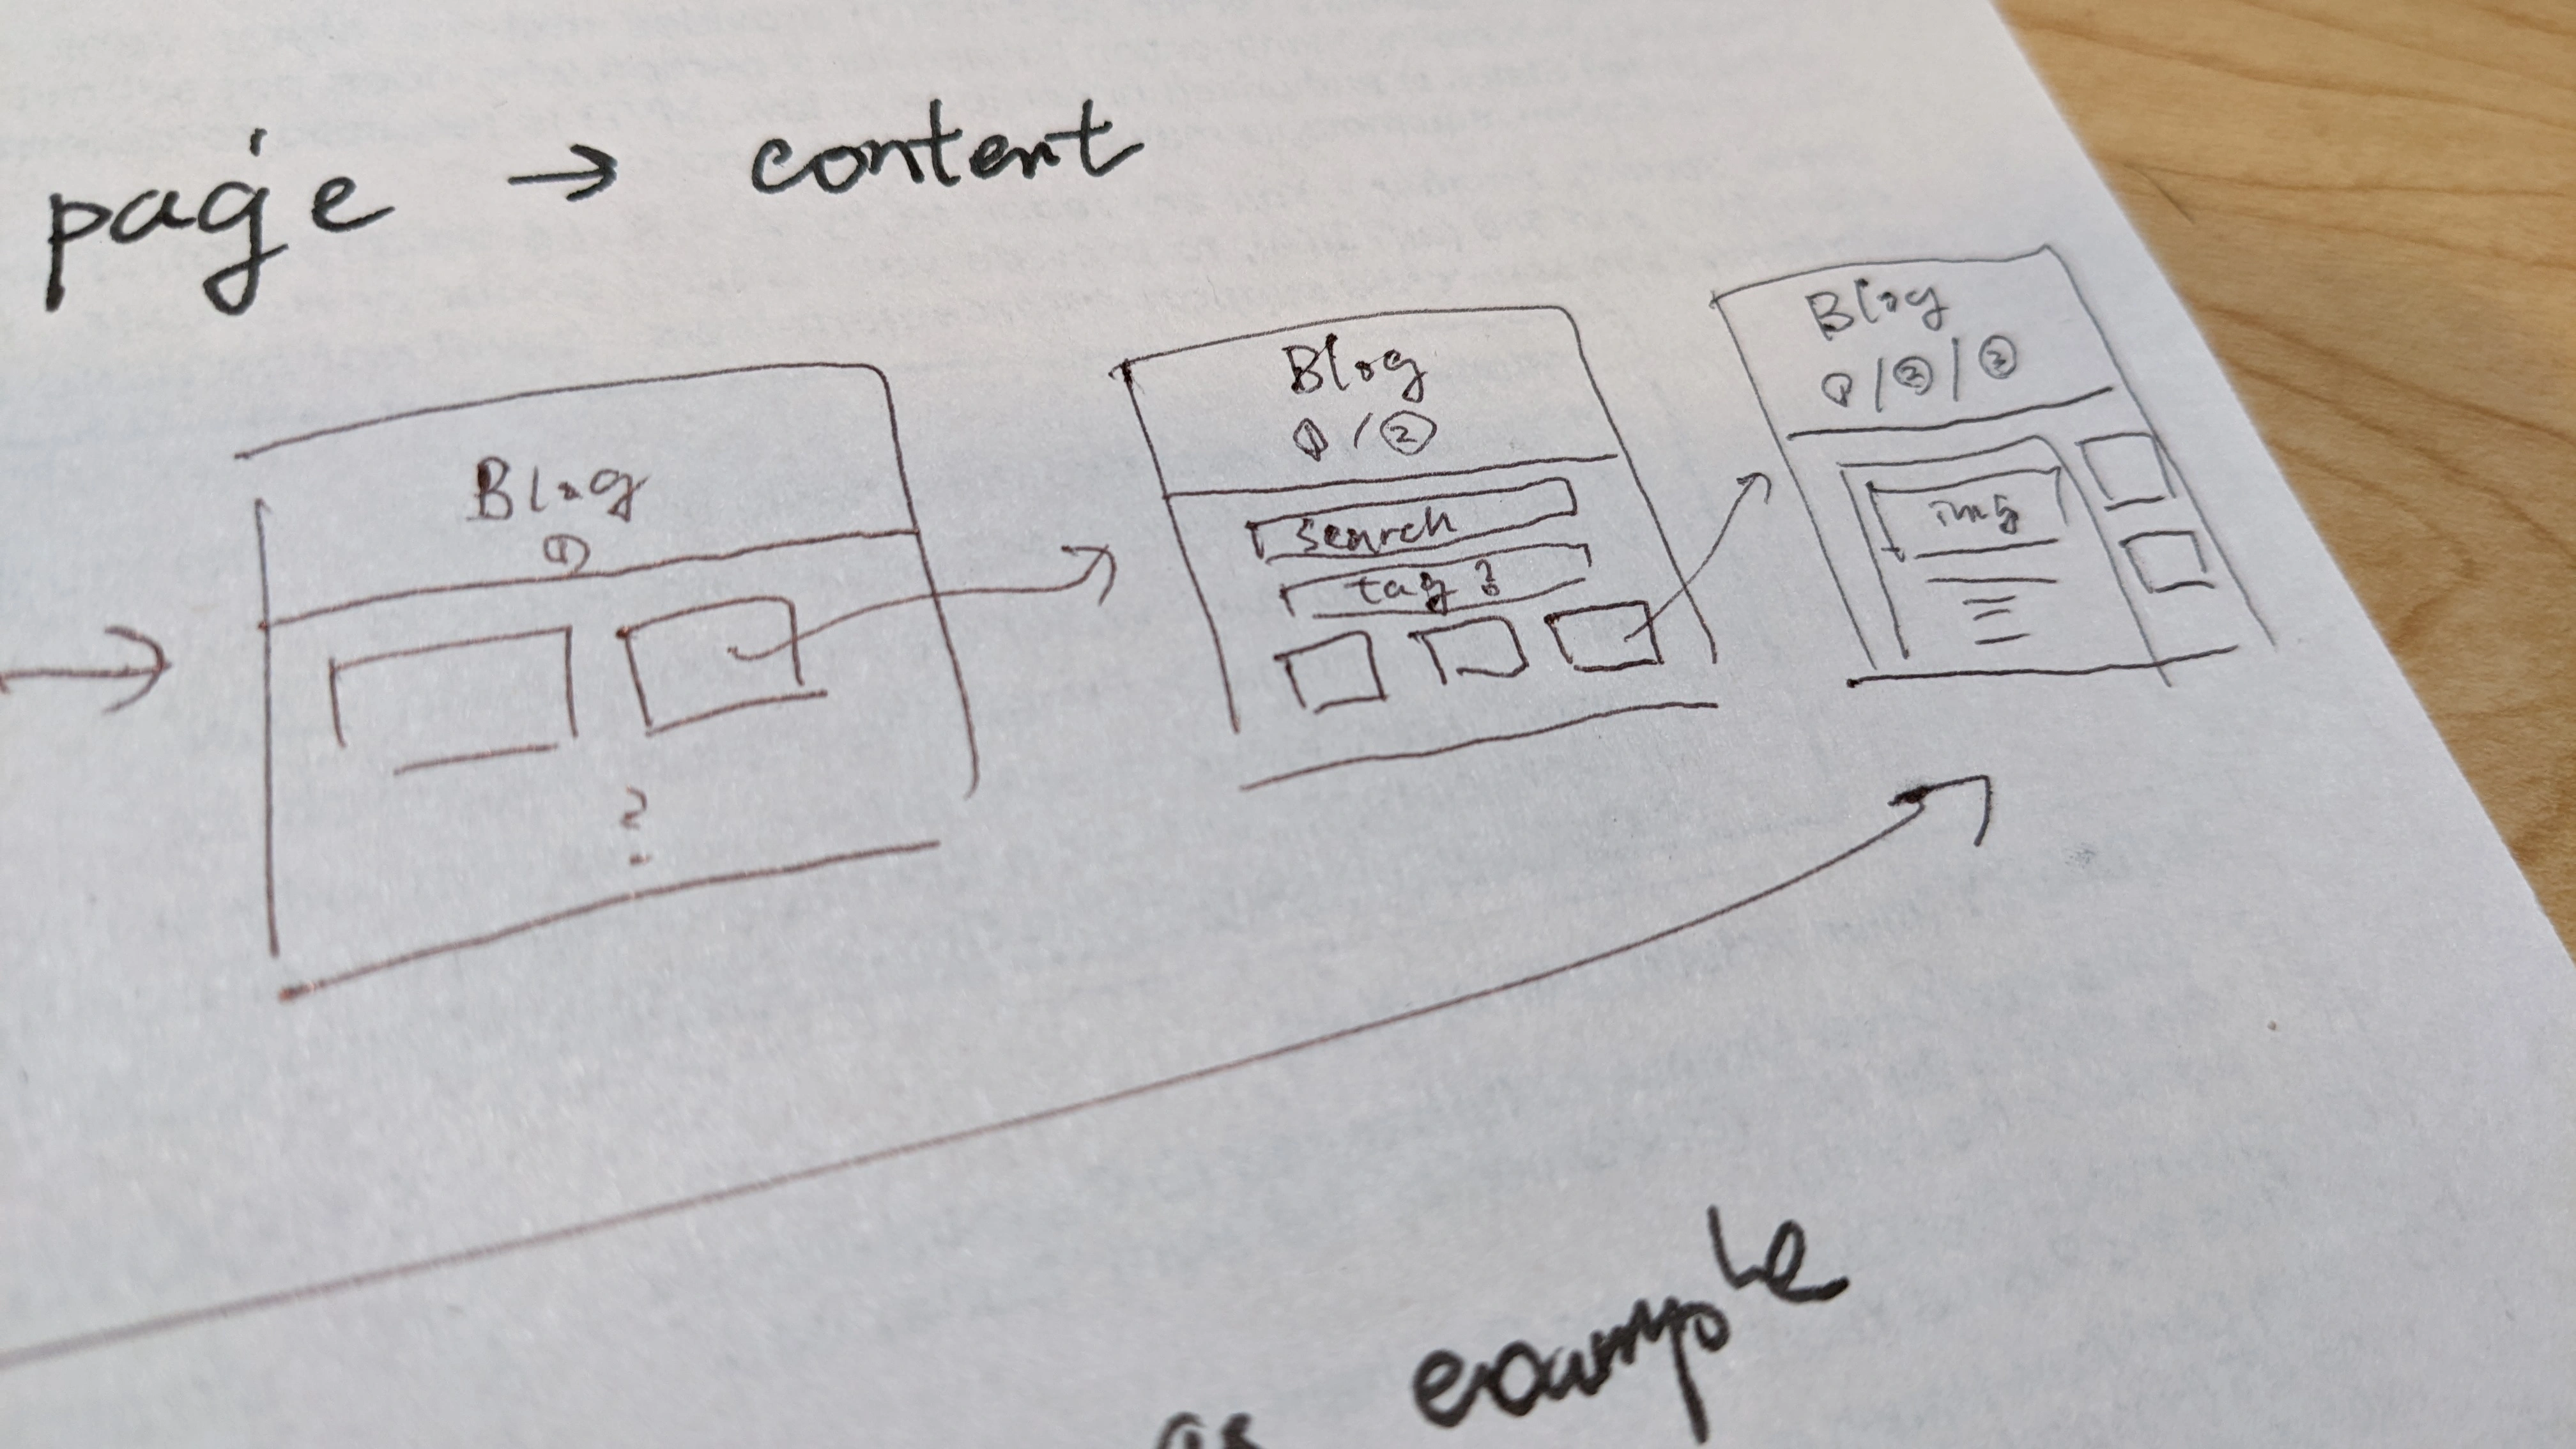 page → content
Blog
①
?
Blog
① / ②
search
tag ?
Blog
① / ② / ③
img
as example